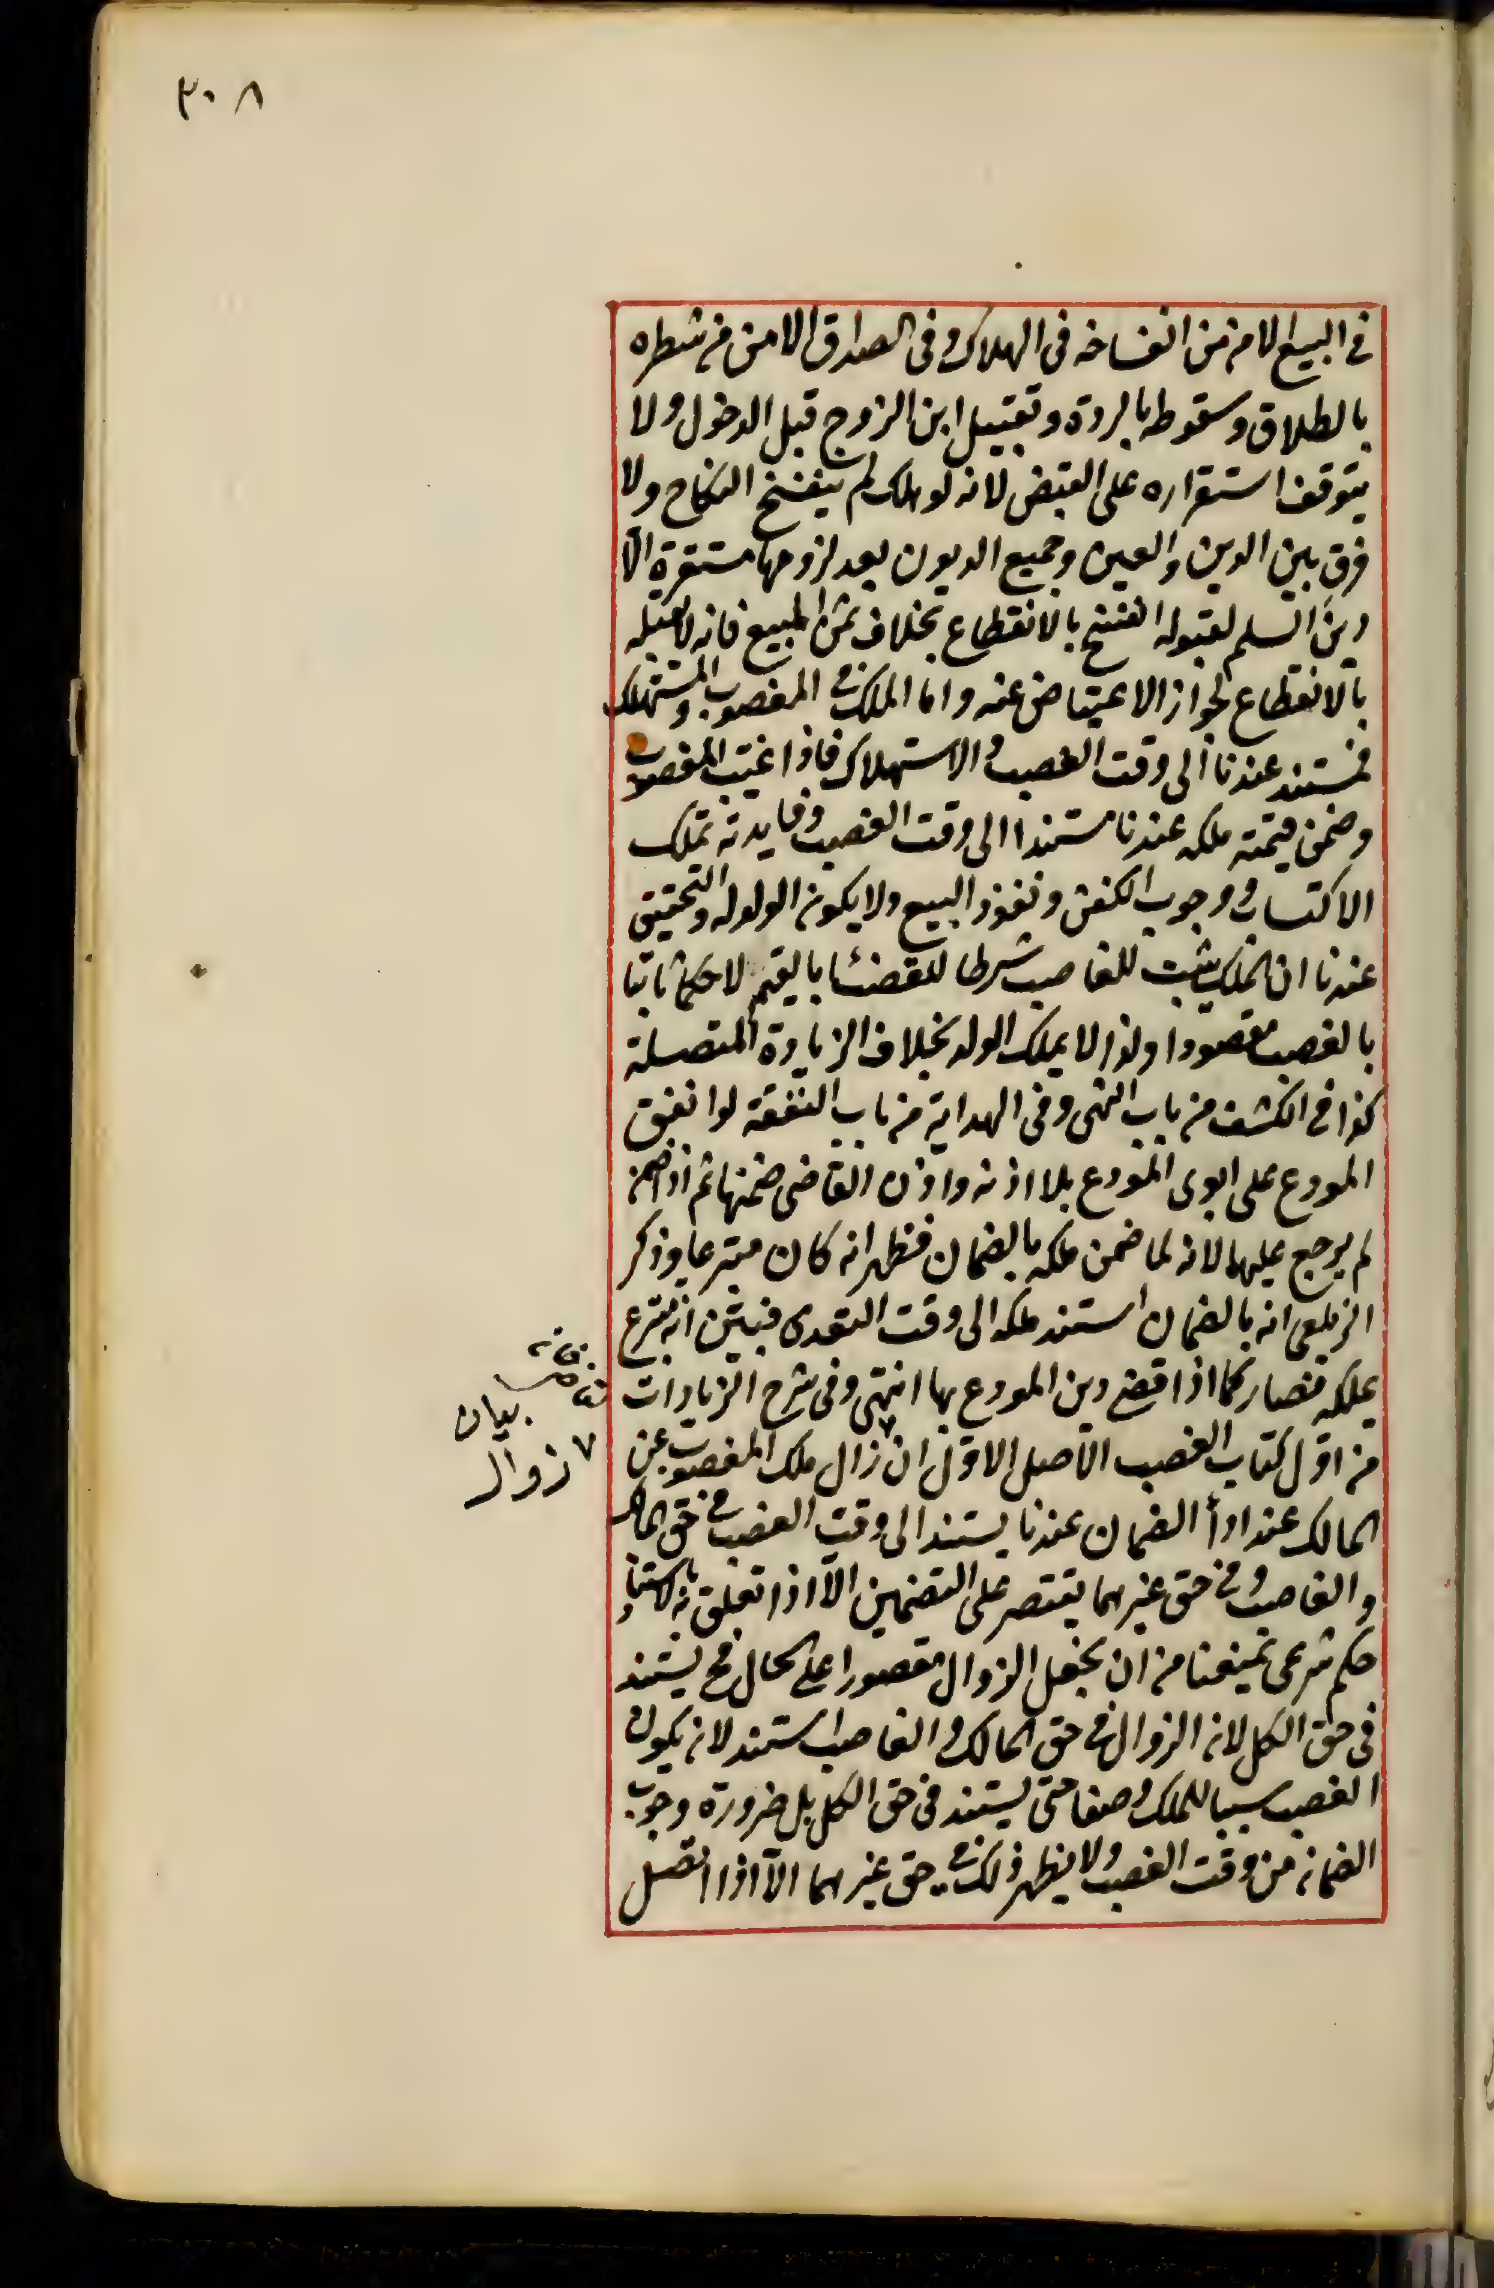 ٣٠٨
في البيع الامن من انفساخه في الهلاك وفي الصداق الامن من شطره
بالطلاق وسقوطه بالردة وتقبيل ابن الزوج قبل الدخول ولا
يتوقف استقراره على القبض لانه لو هلك لم ينفسخ النكاح ولا
فرق بين الدين والعين وجميع الديون بعد لزومها مستقرة الا
دين السلم لقبوله الفسخ بالانقطاع بخلاف ثمن المبيع فانه لا يقبله
بالانقطاع لجواز الاعتياض عنه واما الملك في المغصوب والمستهلك
فمستند عندنا الى وقت الغصب والاستهلاك فاذا غيب المغصوب
وضمن قيمته ملكه عندنا مستندا الى وقت الغصب وفايدته تملك
الاكتساب ووجوب الكفن ونفوذ البيع ولا يكون الولد له والتحقيق
عندنا ان الملك يثبت للغاصب شرطا للقضاء بالقيمة لا حكما ثابتا
بالغصب مقصودا ولذا لا يملك الولد بخلاف الزيادة المتصلة
كذا في الكشف من باب النهى وفي الهداية من باب النفقة لو انفق
المودع على ابوى المودع بلا اذنه واذن القاضى ضمنها ثم اذا ضمن
لم يرجع عليهما لانه لما ضمن ملكه بالضمان فظهر انه كان متبرعا وذكر
الزيلعى انه بالضمان استند ملكه الى وقت التعدى فتبين انه متبرع
بملكه فصار كما اذا قضى دين المودع بها انتهى وفي شرح الزيادات
من اول كتاب الغصب الاصل الاول ان ٧ زال ملك المغصوب عن
المالك عند اداء الضمان عندنا يستند الى وقت الغصب في حق المالك
والغاصب وفي حق غيرهما يقتصر على التضمين الا اذا تعلق بالاستناد
حكم شرعى تمنعنا من ان نجعل الزوال مقصورا على الحال فح يستند
في حق الكل لان الزوال في حق المالك والغاصب استند لانه يكون
الغصب سببا للملك وصفا حتى يستند في حق الكل بل ضرورة وجوب
الضمان من وقت الغصب ولا يظهر ذلك في حق غيرهما الا اذا اتصل
بيان
٧ زوال